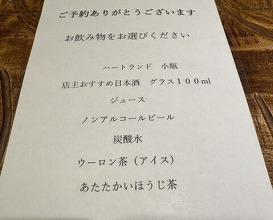 ご予約ありがとうございます
お飲み物をお選びください
ハートランド　小瓶
店主おすすめ日本酒　グラス１００ml
ジュース
ノンアルコールビール
炭酸水
ウーロン茶（アイス）
あたたかいほうじ茶